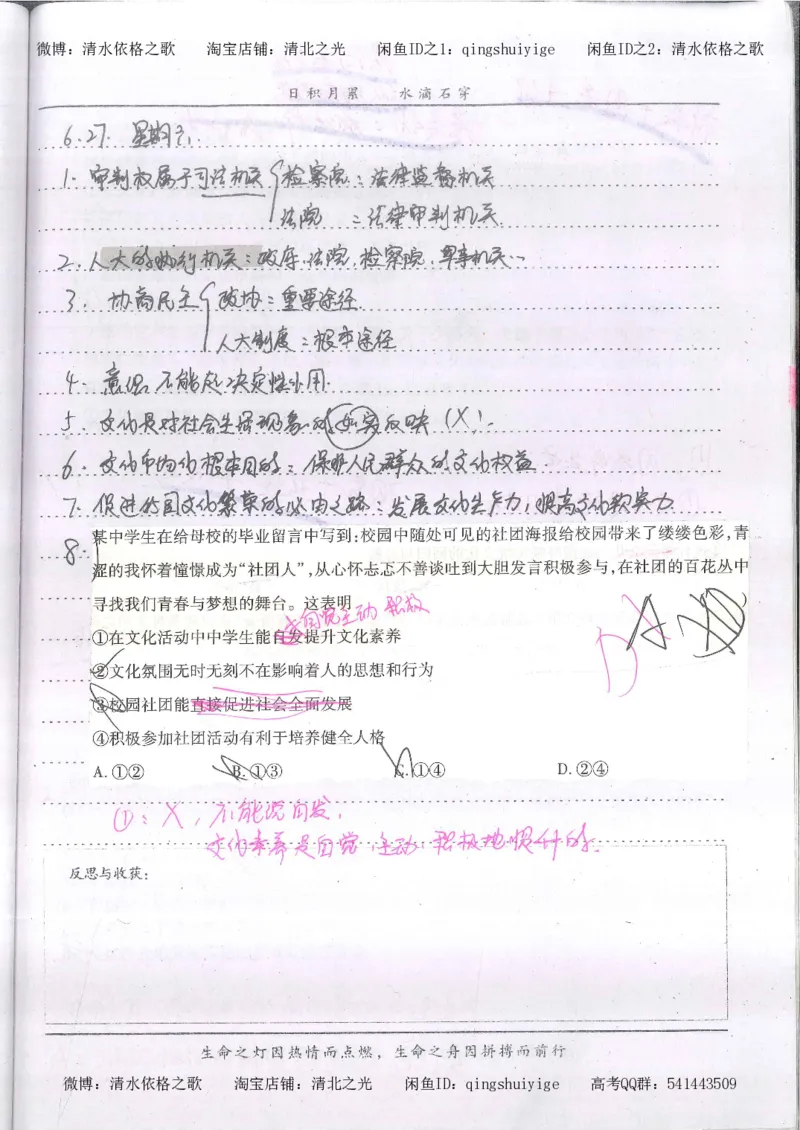 微博：清水依格之歌 淘宝店铺：清北之光 闲鱼ID之1：qingshuiyige 闲鱼ID之2：清水依格之歌
日积月累 水滴石穿
6.27. 星期
1. 审判权属于司法机关 检察院：法律监督机关
法院：法律审判机关
2. 人大的执行机关：政府、法院、检察院、军事机关…
3. 协商民主 政协：重要途径
人大制度：根本途径
4. 意识不能起决定性作用.
5. 文化是对社会生活现象的如实反映（X）.
6. 文化市场的根本目的：保障人民群众的文化权益
7. 促进我国文化繁荣的必由之路：发展文化生产力，提高文化软实力
8. 某中学生在给母校的毕业留言中写到：校园中随处可见的社团海报给校园带来了缕缕色彩，青
涩的我怀着憧憬成为“社团人”，从心怀忐忑不善谈吐到大胆发言积极参与，在社团的百花丛中
寻找我们青春与梦想的舞台。这表明
自觉主动 积极
①在文化活动中中学生能自发提升文化素养
②文化氛围无时无刻不在影响着人的思想和行为
③校园社团能直接促进社会全面发展
④积极参加社团活动有利于培养健全人格
A.①② B.①③ C.①④ D.②④
D A
①：X，不能说自发，
文化素养是自觉、主动、积极地提升的.
反思与收获：
生命之灯因热情而点燃，生命之舟因拼搏而前行
微博：清水依格之歌 淘宝店铺：清北之光 闲鱼ID：qingshuiyige 高考QQ群：541443509